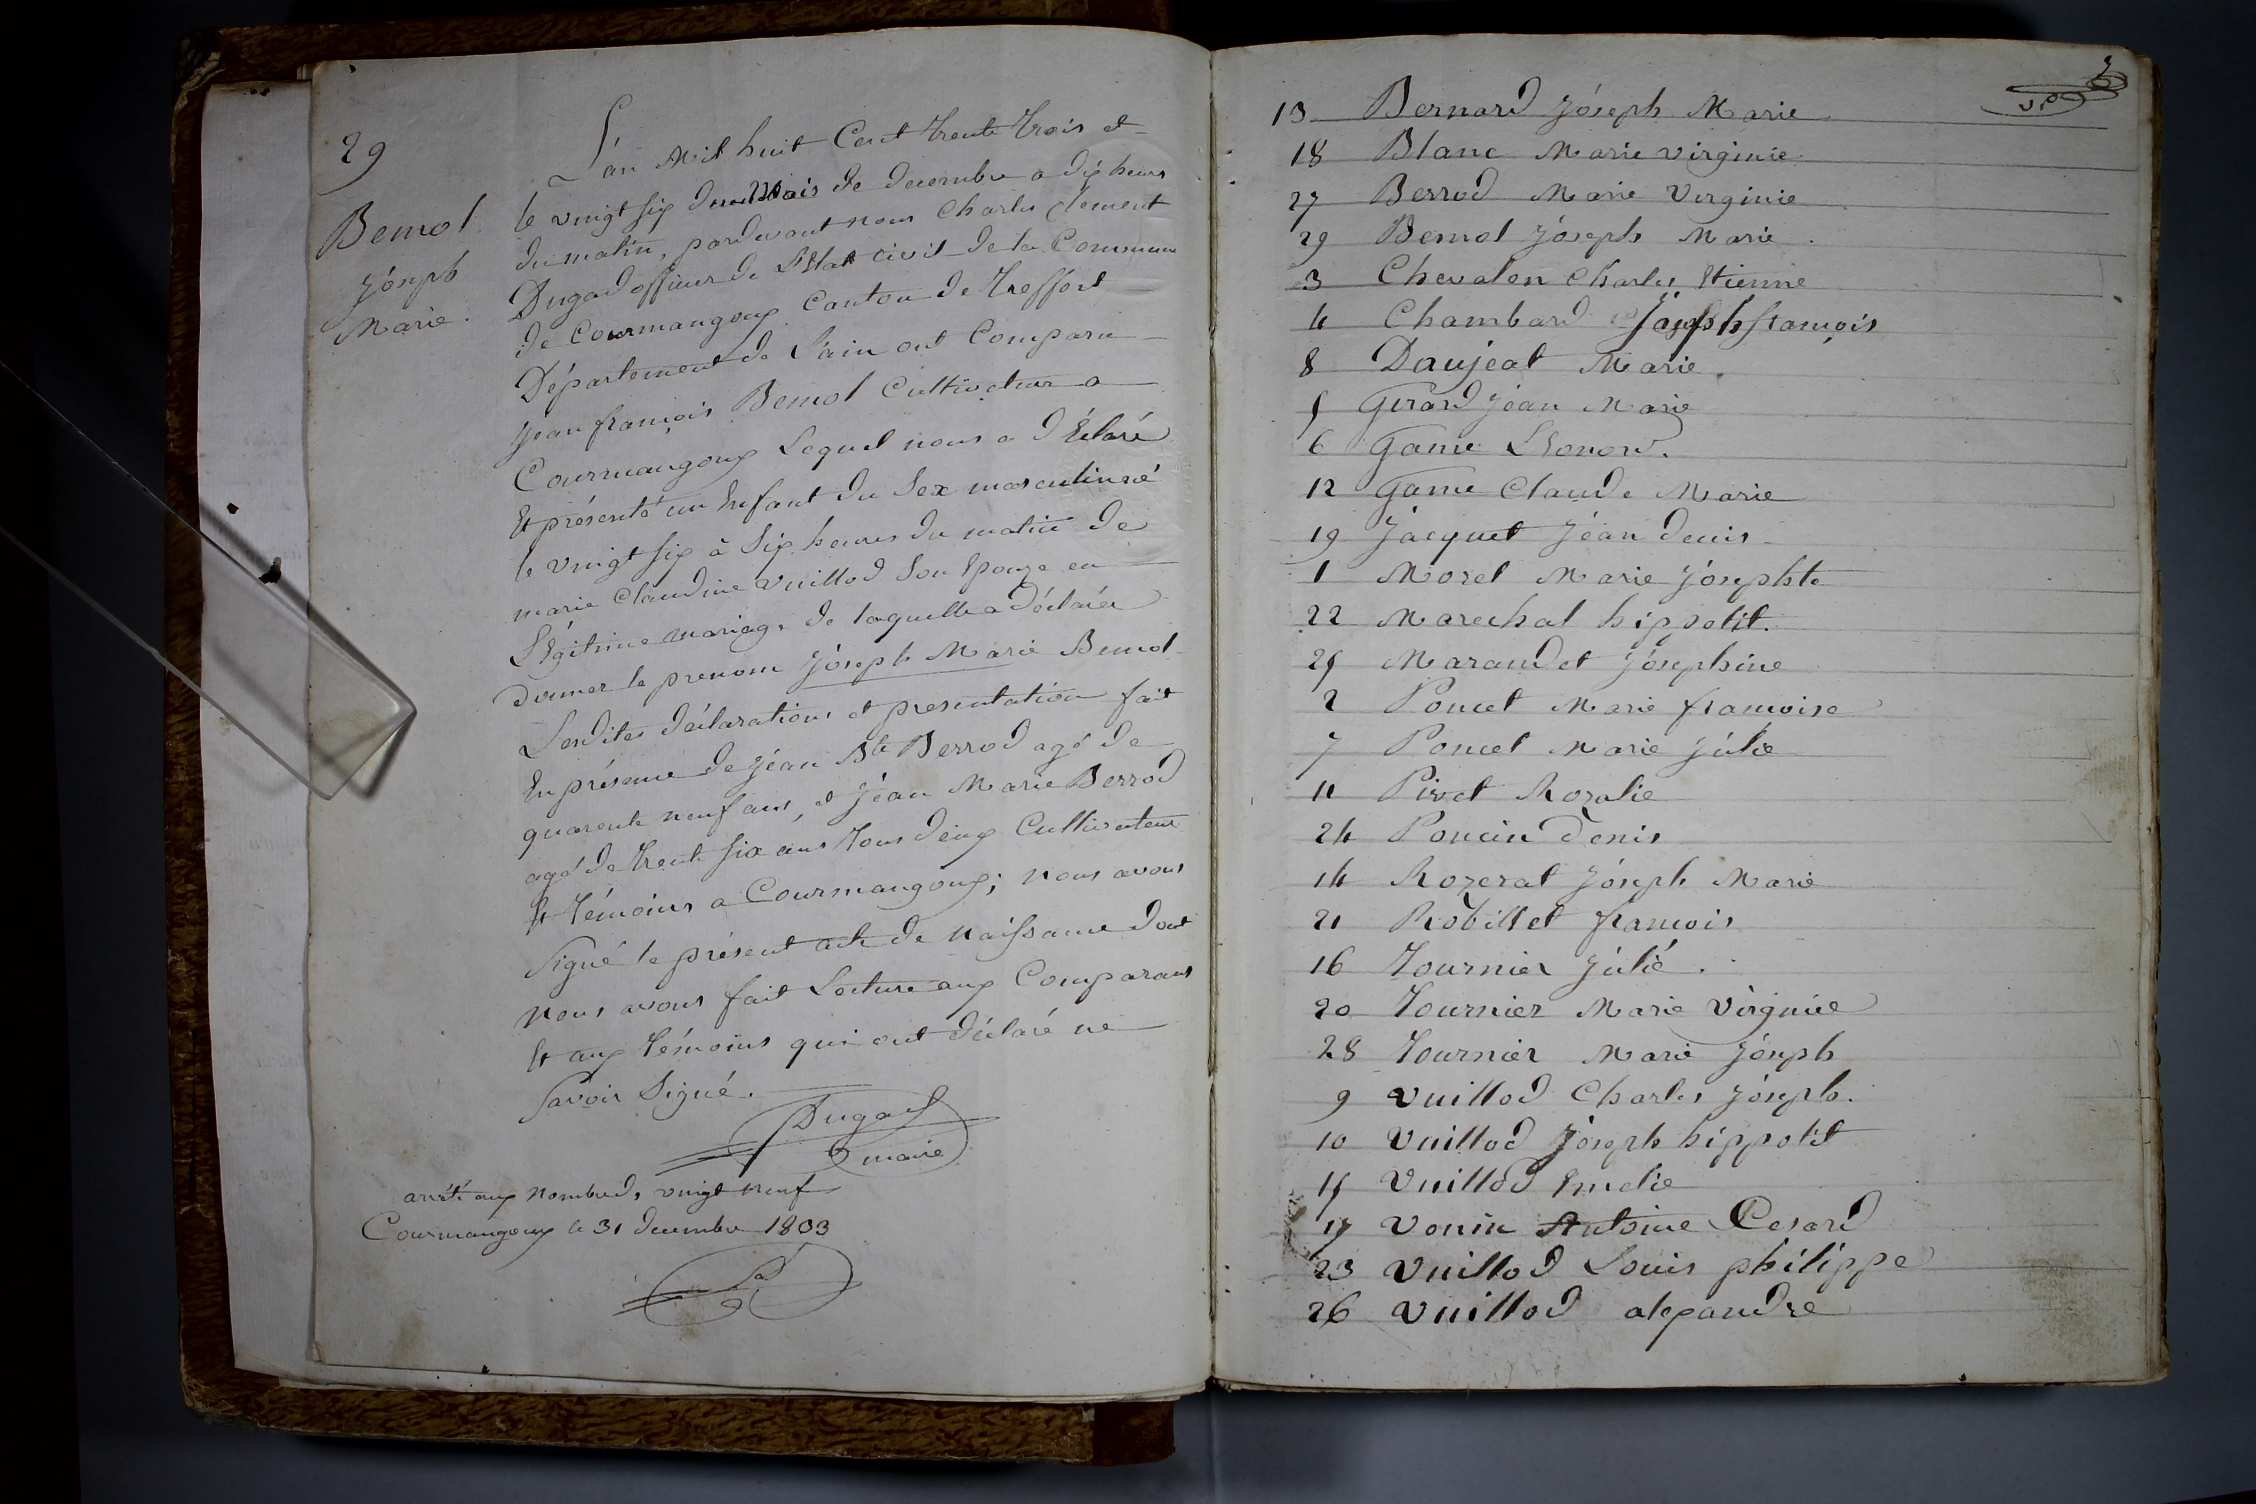 29
Bemol
Jóseph
Marie.
L'an Mil huit Cent trente trois et
le vingt six du Mois de decembre a dix heures
du matin, pardevant nous Charles clement
Dugad officier de L'Etat civil de la Commune
de Courmangoux Canton de Treffort
Département de L'ain ont Comparu
Jean françois Bemol Cultivateur a
Courmangoux Lequel nous a dEclaré
Et présenté un Enfant du Sex masculin né
le vingt six à Six heures du matin de
marie Claudine Vuillod Son Epouze en
LEgitime mariage de laquelle a déclarée
donner le prenom Jóseph Marie Bemol
Lesdites déclarations et presentation fait
En présence de Jéan Bte Berrod agé de
quarente neuf ans, et Jéan Marie Berrod
agé de trente six ans tous deux Cultivateur
Et témoins a Courmangoux; nous avons
Signé le présent acte de Naissance dont
Nous avons fait Lecture aux Comparans
Et aux témoins qui ont déclaré ne
Savoir Signé.
Dugad
maire
arrété aux nombre de vingt neuf
Courmangoux le 31 decembre 1833
13 Bernard Jóseph Marie
18 Blanc Marie virginie
27 Berrod Marie Virginie
29 Bemol Jóseph Marie.
3 Chevalon Charles Etienne
4 Chambard Joseph francois
8 Daujeat Marie.
5 Girard Jéan Marie
6 Game LEonord.
12 Game Claude Marie
19 Jacquet Jéan denis
1 Morel Marie Jósephte
22 Marechal hippolit.
25 Marandet Jósephine
2 Poncet Marie francoise
7 Poncet Marie Júlie
11 Pivet Rozalie
24 Poncin Denis
14 Rozerat Jóseph Marie
21 Robillet francois
16 Tournier Júlié.
20 Tournier Marie Virginie
28 Tournier Marie Jóseph
9 Vuillod Charles Jóseph.
10 Vuillod Jóseph hippolit
15 Vuillod Emelie
17 Vonin Antoine Cesard
23 Vuillod Louis philippe
26 Vuillod alexandre